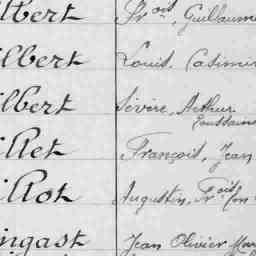 lbert Fr.ois, Guillaume
lbert Louis, Casimir
lbert Sévère, Arthur
Toussaint
llet François, Jean
llot Augustin, Fr.ois
ngast Jean Olivier Mar